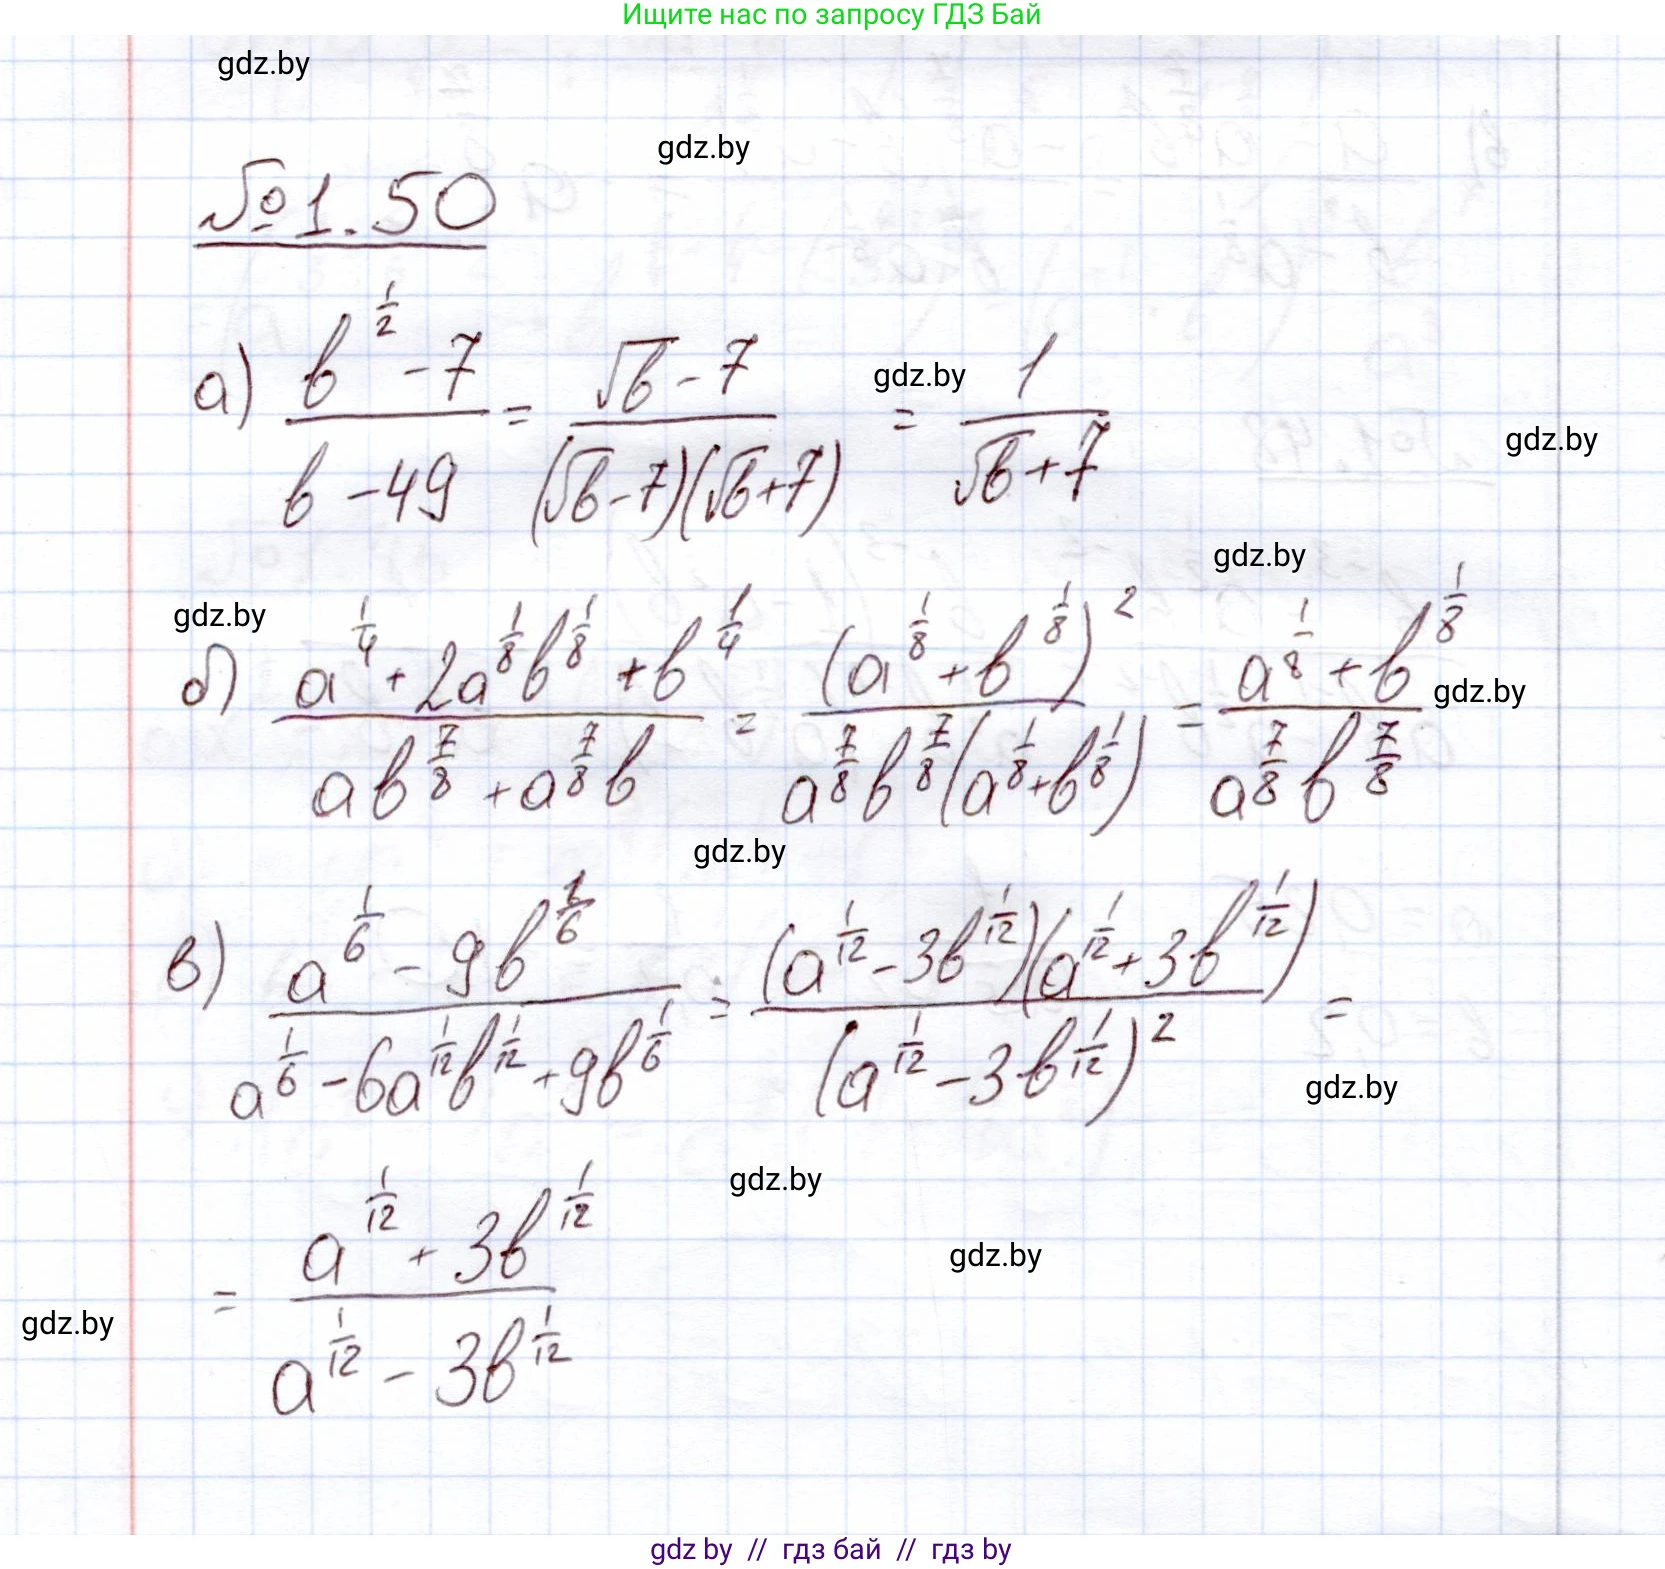 Ищите нас по запросу ГДЗ Бай
gdz.by
gdz.by
№1.50
а) (b^(1/2) - 7)/(b - 49) = (√b - 7)/((√b - 7)(√b + 7)) = 1/(√b + 7)
gdz.by
gdz.by
gdz.by
gdz.by
б) (a^(1/4) + 2a^(1/8)b^(1/8) + b^(1/4))/(ab^(7/8) + a^(7/8)b) = (a^(1/8) + b^(1/8))^2/(a^(7/8)b^(7/8)(a^(1/8) + b^(1/8))) = (a^(1/8) + b^(1/8))/(a^(7/8)b^(7/8))
gdz.by
gdz.by
в) (a^(1/6) - 9b^(1/6))/(a^(1/6) - 6a^(1/12)b^(1/12) + 9b^(1/6)) = ((a^(1/12) - 3b^(1/12))(a^(1/12) + 3b^(1/12)))/(a^(1/12) - 3b^(1/12))^2 =
gdz.by
gdz.by
= (a^(1/12) + 3b^(1/12))/(a^(1/12) - 3b^(1/12))
gdz.by
gdz.by
gdz by // гдз бай // гдз by